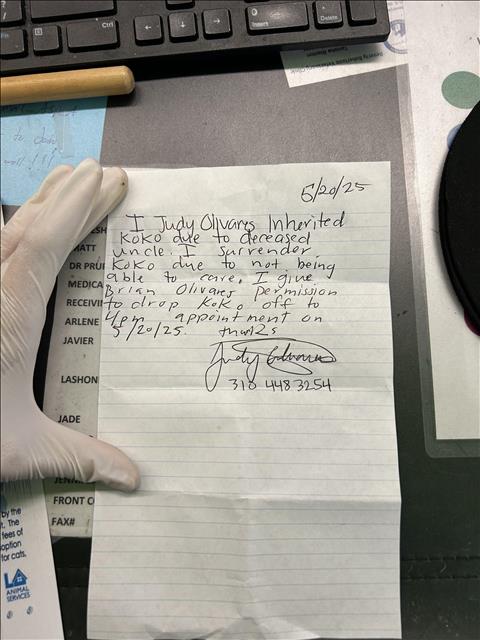 Ctrl
Insert
Delete
5/20/25
I Judy Olivares Inherited
KoKo due to deceased
uncle. I surrender
KoKo due to not being
able to care. I give
Brian Olivares permission
to drop KoKo off to
4pm appointment on
5/20/25. thanks
Judy Olivares
310 448 3254
MATT
DR PRUI
MEDICA
RECEIVI
ARLENE
JAVIER
LASHON
JADE
FRONT CO
FAX#
by the
t. The
fees of
option
for cats.
LA
ANIMAL
SERVICES